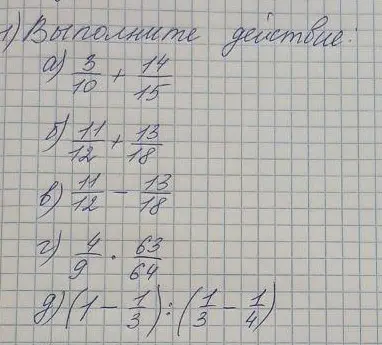 1) Выполните действие:
а) 3/10 + 14/15
б) 11/12 + 13/18
в) 11/12 - 13/18
г) 4/9 · 63/64
д) (1 - 1/3) : (1/3 - 1/4)